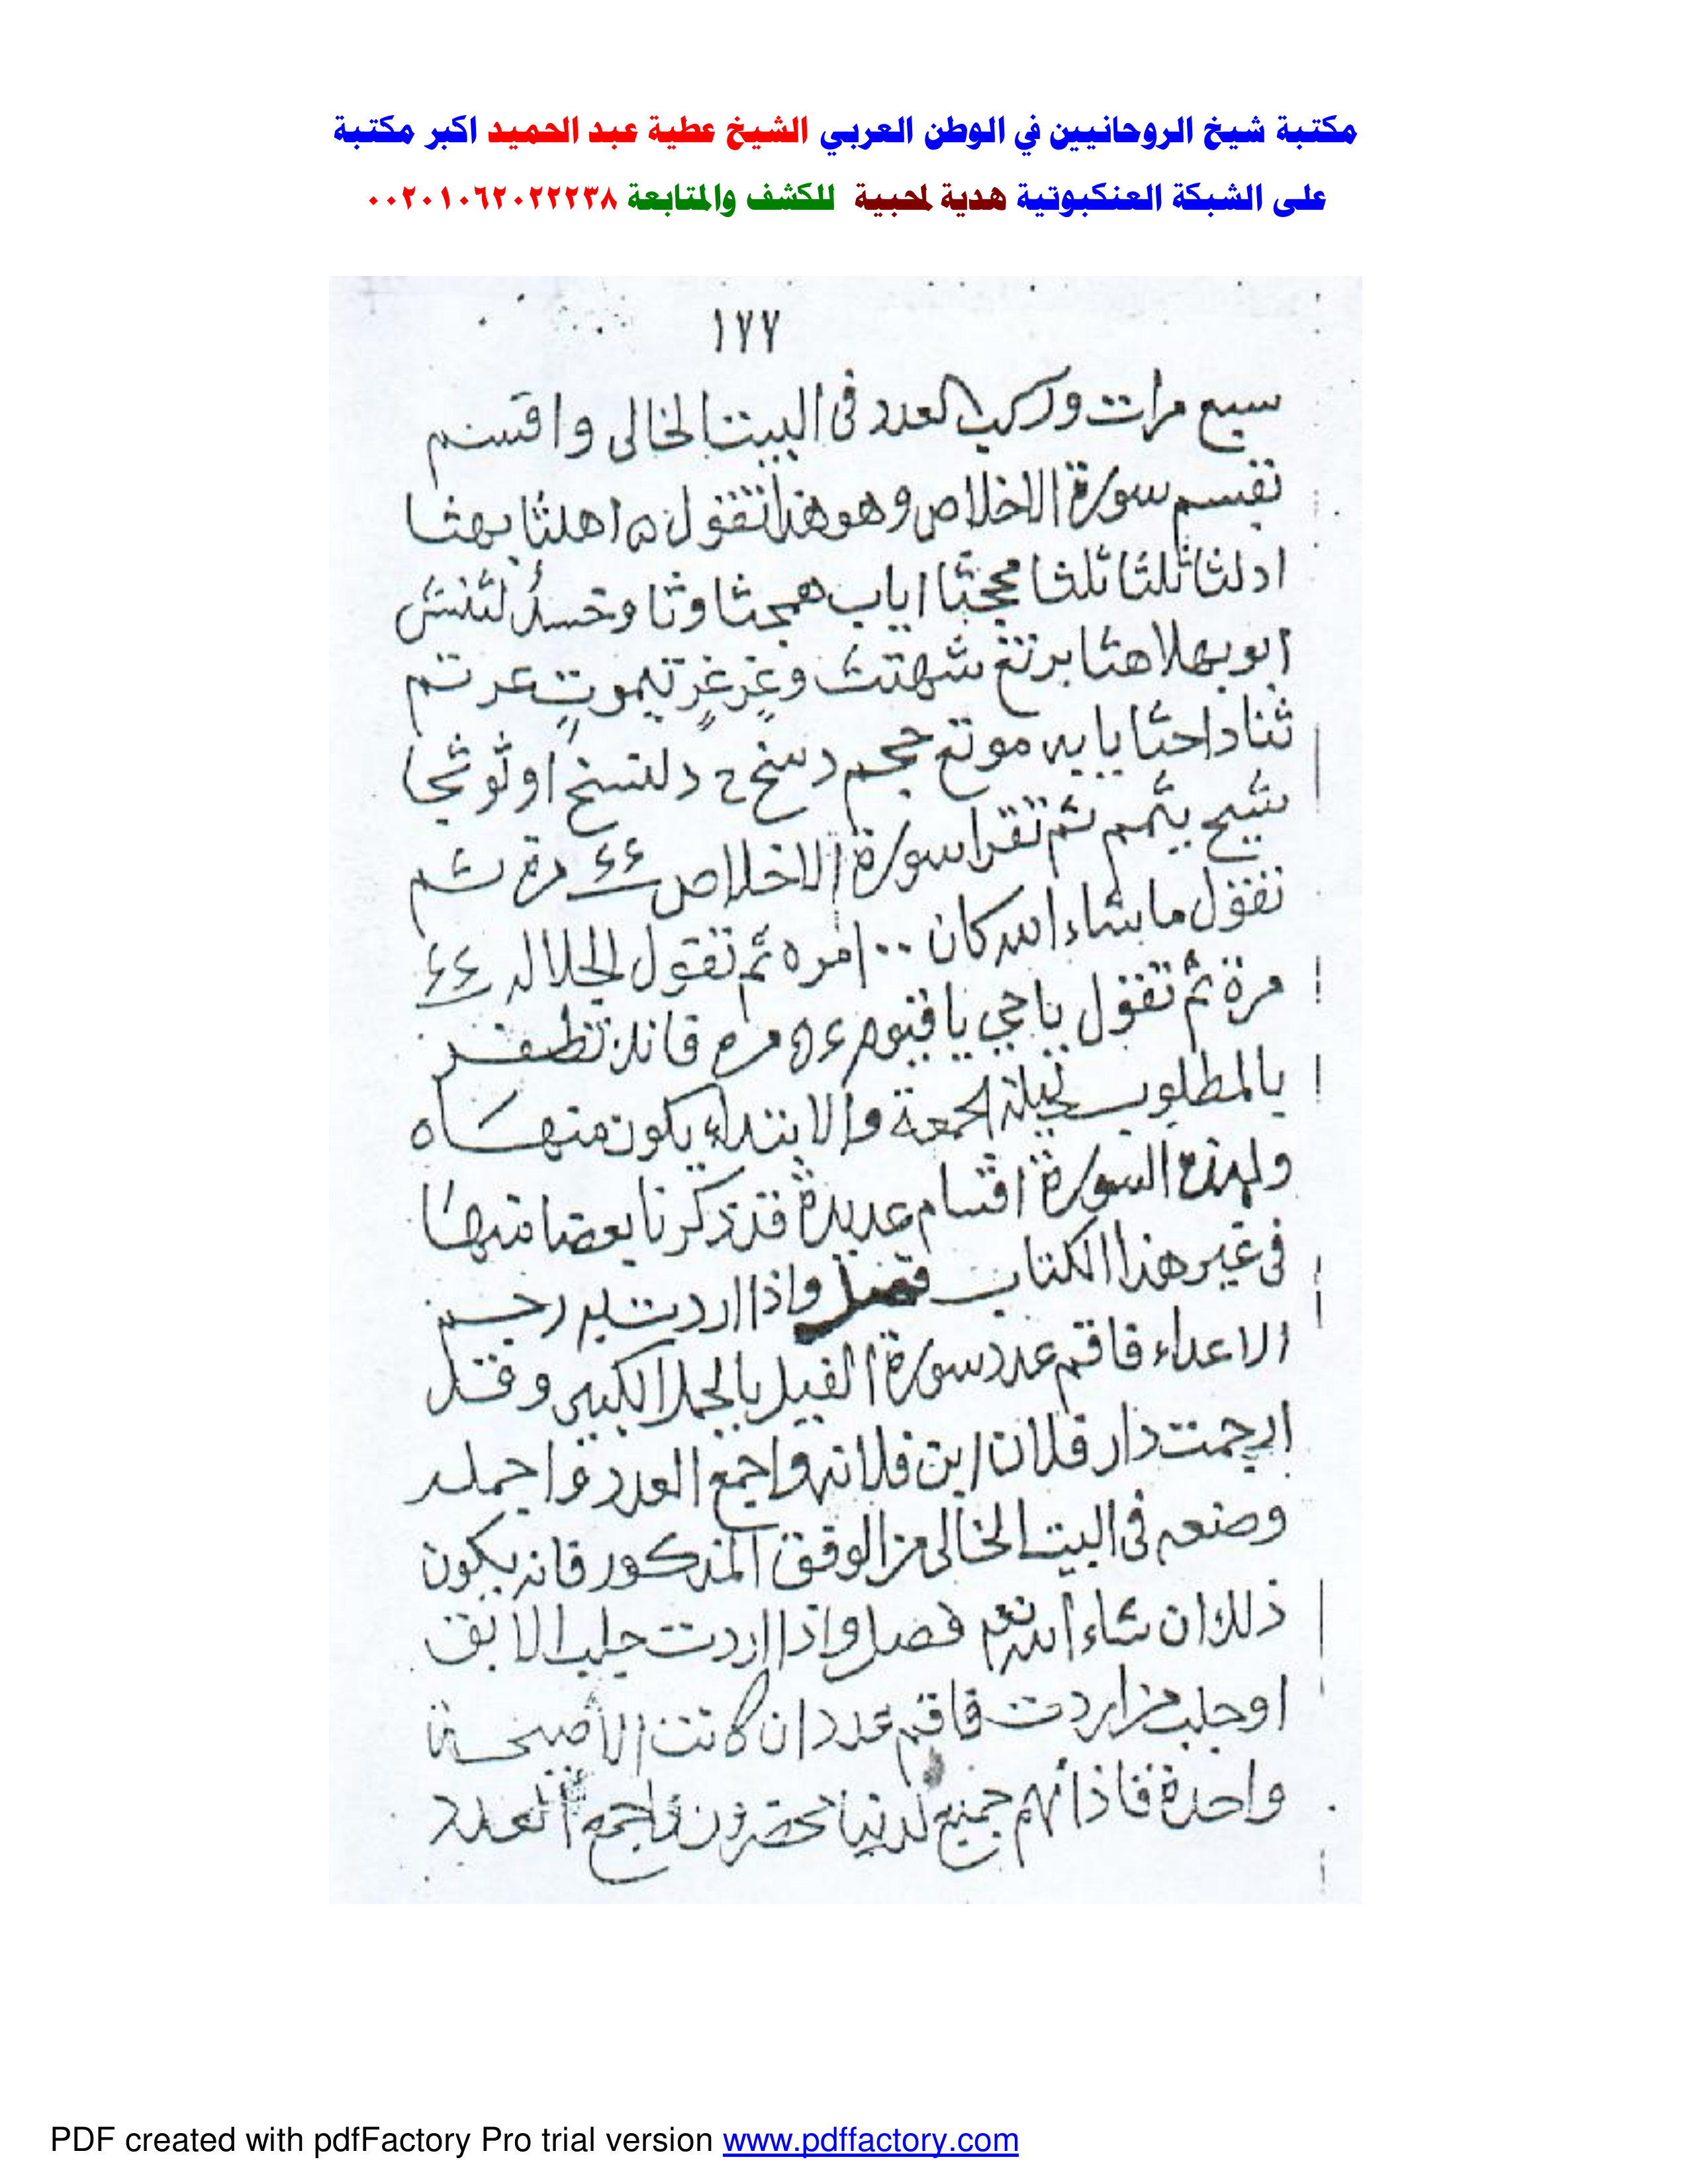 مكتبة شيخ الروحانيين في الوطن العربي الشيخ عطية عبد الحميد اكبر مكتبة
على الشبكة العنكبوتية هدية لمحبية للكشف والمتابعة ٠٠٢٠١٠٦٢٠٢٢٢٣٨
١٧٧
سبع مرات وركب العدد فى البيت الخالى واقسم
بقسم سورة الاخلاص وهو هذا تقول اهلثا بهثا
ادلثا ثلثا ثلثا اياب همجثا وثا
ابو بهلا هثا برتغ وغزغز تيموت عرتم
ثنا داحثا يا يه موتع حجم دسخ ح
ثم تقرا سورة الاخلاص ٤٤ مرة ثم
تقول ما شاء الله كان ١٠٠ مره ثم تقول الجلاله ٤٤
مرة ثم تقول يا حي يا قيوم مره فانك تظفر
بالمطلوب ليلة الجمعة والابتداء يكون منها ه
ولهذه السورة اقسام عديدة قد ذكرنا بعضا منها
فى غير هذا الكتاب فصل واذا اردت به رجم
الاعداء فاقم عدد سورة الفيل بالجمل الكبير وقل
ارجمت دار فلان ابن فلانه واجمع العدد واجمله
وضعه فى البيت الخالى من الوفق المذكور فانه يكون
ذلك ان شاء الله تعم فصل واذا اردت جلب الابق
او جلب من اردت فاقم عدد ان كانت الا صيحة
واحدة فاذا هم جميع لدينا محضرون واجمع العدد
PDF created with pdfFactory Pro trial version www.pdffactory.com